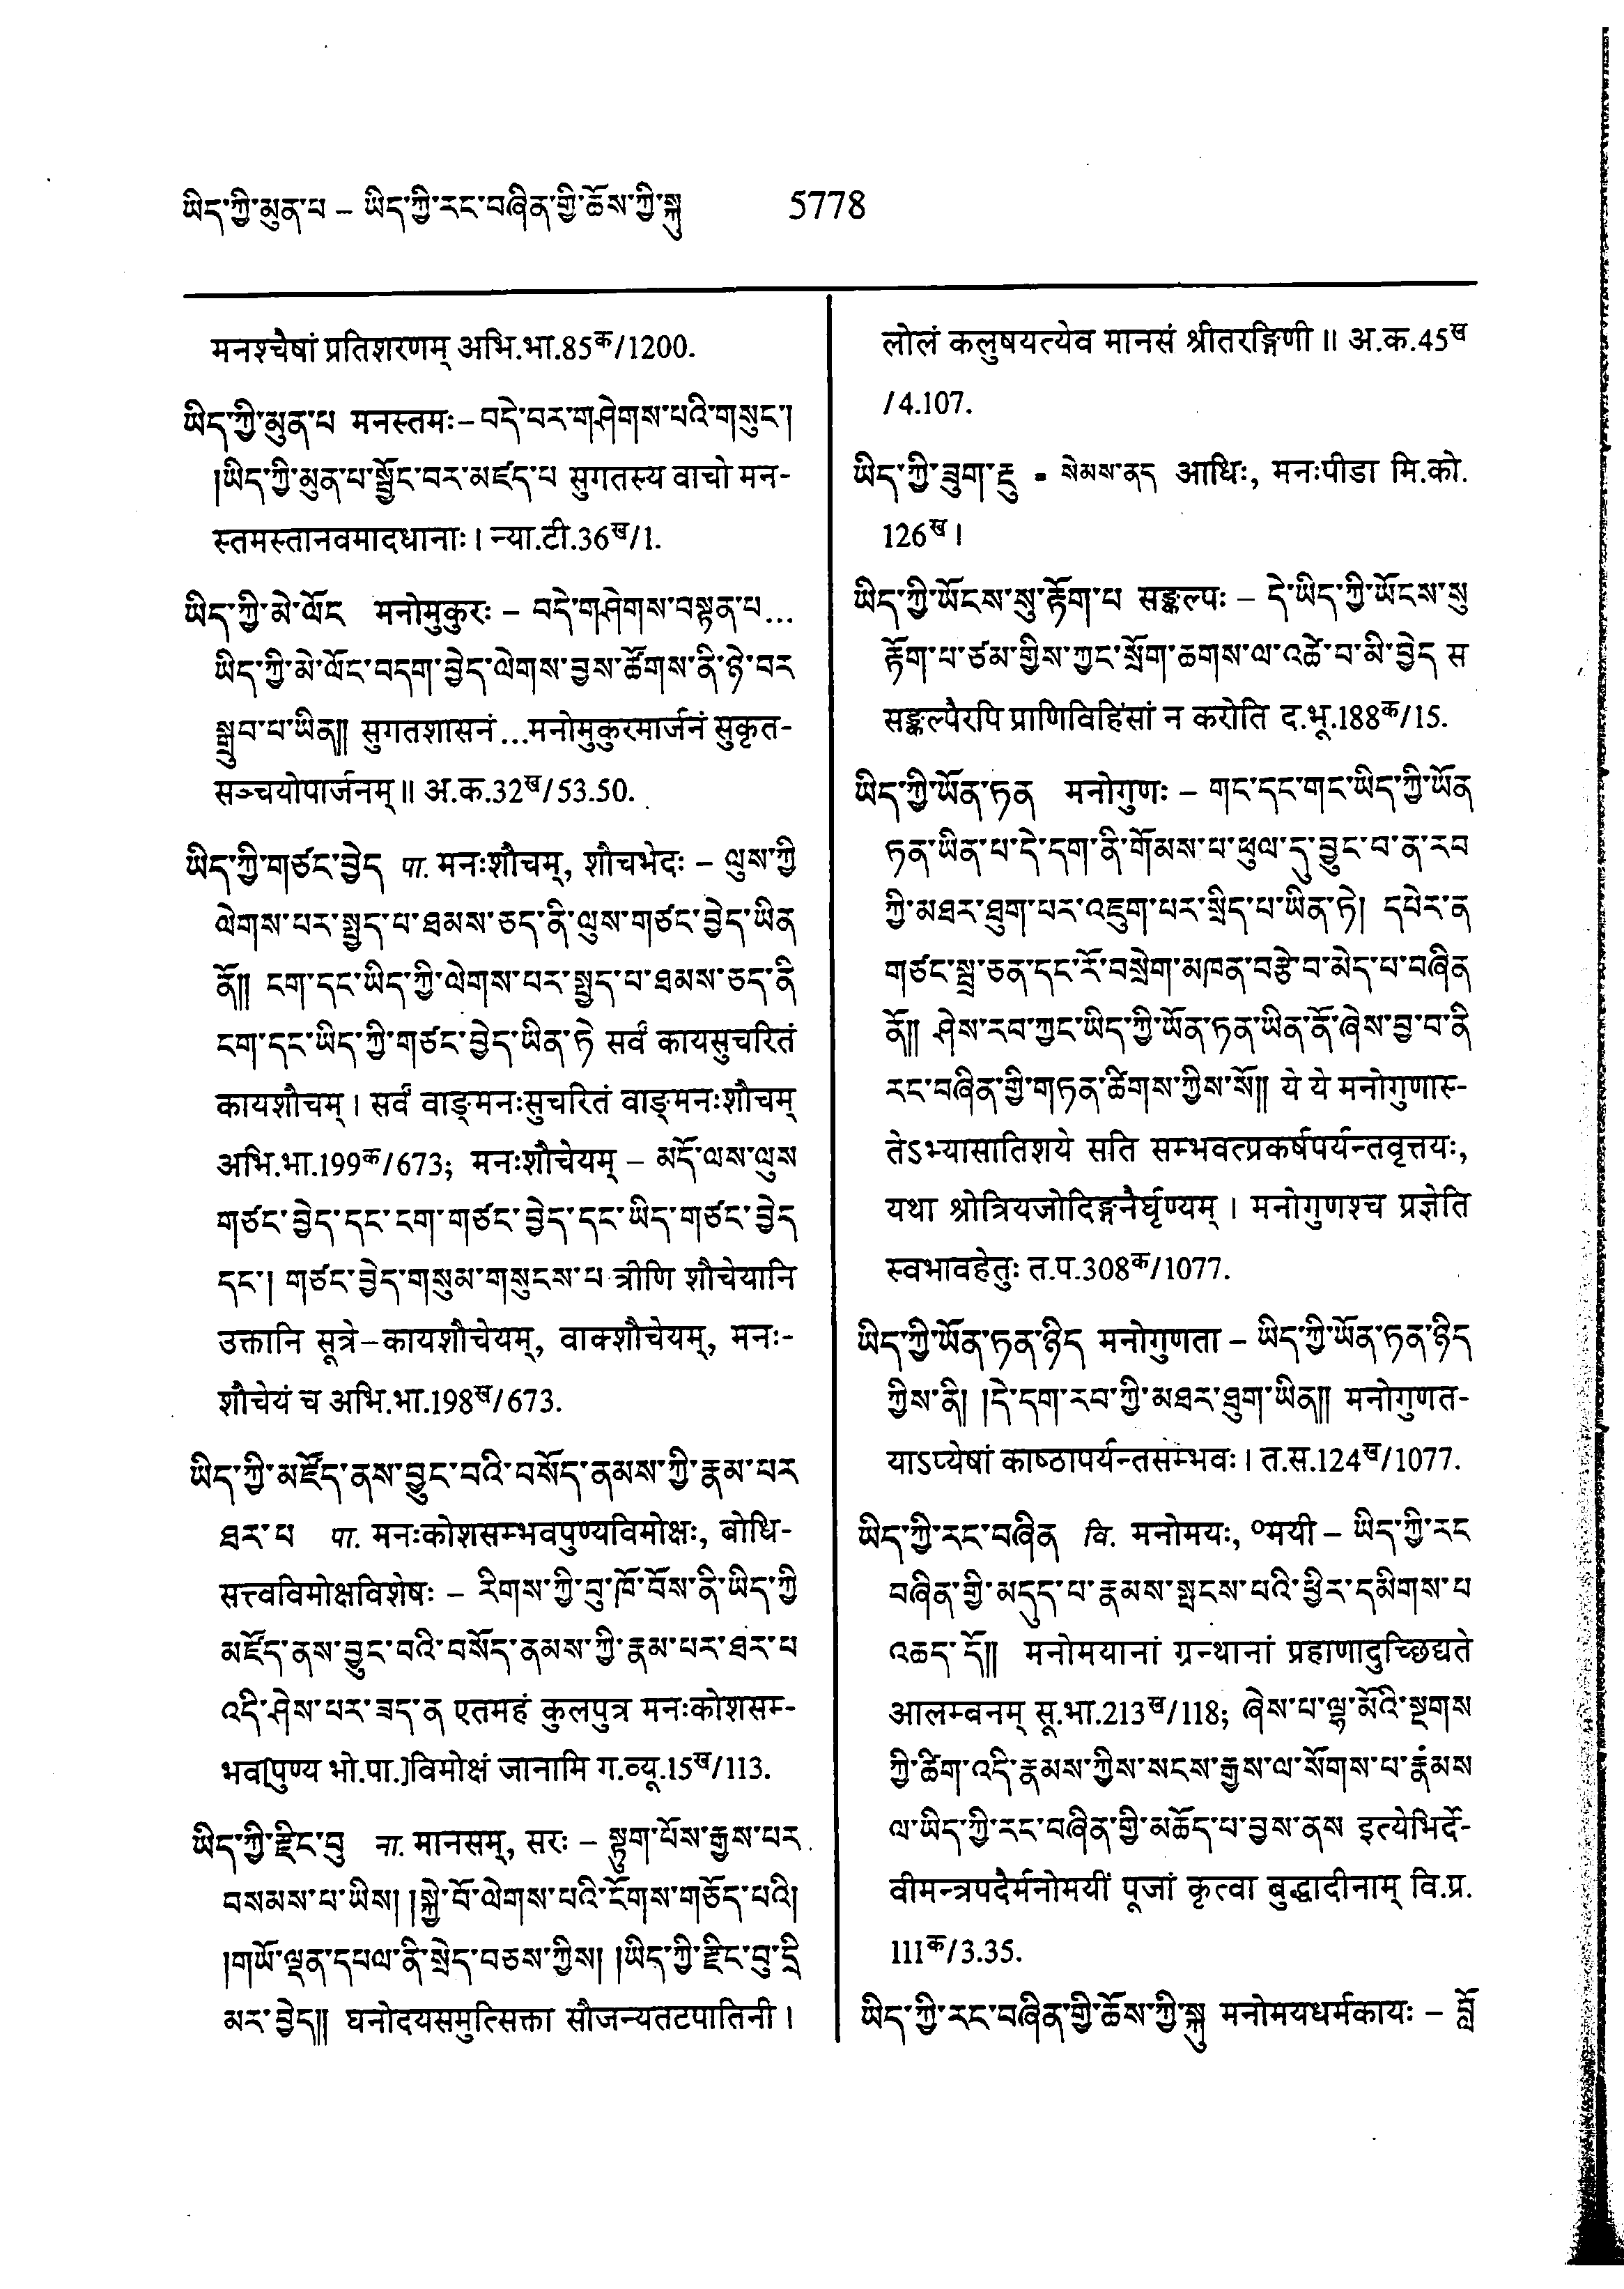 ཡིད་ཀྱི་མུན་པ – ཡིད་ཀྱི་རང་བཞིན་གྱི་ཆོས་ཀྱི་སྐུ 5778
मनश्चैषां प्रतिशरणम् अभि.भा.85क/1200.
ཡིད་ཀྱི་མུན་པ मनस्तमः– བདེ་བར་གཤེགས་པའི་གསུང་།
།ཡིད་ཀྱི་མུན་པ་སྦྱོང་བར་མཛད་པ सुगतस्य वाचो मन-
स्तमस्तानवमादधानाः। न्या.टी.36ख/1.
ཡིད་ཀྱི་མེ་ལོང मनोमुकुरः – བདེ་གཤེགས་བསྟན་པ...
ཡིད་ཀྱི་མེ་ལོང་བདག་བྱེད་ལེགས་བྱས་ཚོགས་ནི་ཉེ་བར
སྒྲུབ་པ་ཡིན།། सुगतशासनं ...मनोमुकुरमार्जनं सुकृत-
सञ्चयोपार्जनम्॥ अ.क.32ख/53.50.
ཡིད་ཀྱི་གཙང་བྱེད पा. मनःशौचम्, शौचभेदः – ལུས་ཀྱི
ལེགས་པར་སྤྱད་པ་ཐམས་ཅད་ནི་ལུས་གཙང་བྱེད་ཡིན
ནོ།། ངག་དང་ཡིད་ཀྱི་ལེགས་པར་སྤྱད་པ་ཐམས་ཅད་ནི
ངག་དང་ཡིད་ཀྱི་གཙང་བྱེད་ཡིན་ཏེ सर्वं कायसुचरितं
कायशौचम्। सर्वं वाङ्मनःसुचरितं वाङ्मनःशौचम्
अभि.भा.199क/673; मनःशौचेयम् – མདོ་ལས་ལུས
གཙང་བྱེད་དང་ངག་གཙང་བྱེད་དང་ཡིད་གཙང་བྱེད
དང་། གཙང་བྱེད་གསུམ་གསུངས་པ त्रीणि शौचेयानि
उक्तानि सूत्रे–कायशौचेयम्, वाक्शौचेयम्, मनः-
शौचेयं च अभि.भा.198ख/673.
ཡིད་ཀྱི་མཛོད་ནས་བྱུང་བའི་བསོད་ནམས་ཀྱི་རྣམ་པར
ཐར་པ पा. मनःकोशसम्भवपुण्यविमोक्षः, बोधि-
सत्त्वविमोक्षविशेषः – རིགས་ཀྱི་བུ་ཁོ་བོས་ནི་ཡིད་ཀྱི
མཛོད་ནས་བྱུང་བའི་བསོད་ནམས་ཀྱི་རྣམ་པར་ཐར་པ
འདི་ཤེས་པར་ཟད་ན एतमहं कुलपुत्र मनःकोशसम्-
भव[पुण्य भो.पा.]विमोक्षं जानामि ग.व्यू.15ख/113.
ཡིད་ཀྱི་རྫིང་བུ ना. मानसम्, सरः – སྟུག་པོས་རྒྱས་པར
བསམས་པ་ཡིས། །སྐྱེ་བོ་ལེགས་པའི་ངོགས་གཅོད་པའི།
།གཡོ་ལྡན་དཔལ་ནི་སྲེད་བཅས་ཀྱིས། །ཡིད་ཀྱི་རྫིང་བུ་དྲི
མར་བྱེད།། घनोदयसमुत्सिक्ता सौजन्यतटपातिनी।
लोलं कलुषयत्येव मानसं श्रीतरङ्गिणी॥ अ.क.45ख
/4.107.
ཡིད་ཀྱི་ཟུག་རྔུ = སེམས་ནད आधिः, मनःपीडा मि.को.
126ख।
ཡིད་ཀྱི་ཡོངས་སུ་རྟོག་པ सङ्कल्पः – དེ་ཡིད་ཀྱི་ཡོངས་སུ
རྟོག་པ་ཙམ་གྱིས་ཀྱང་སྲོག་ཆགས་ལ་འཚེ་བ་མི་བྱེད स
सङ्कल्पैरपि प्राणिविहिंसां न करोति द.भू.188क/15.
ཡིད་ཀྱི་ཡོན་ཏན मनोगुणः – གང་དང་གང་ཡིད་ཀྱི་ཡོན
ཏན་ཡིན་པ་དེ་དག་ནི་གོམས་པ་ཕུལ་དུ་བྱུང་བ་ན་རབ
ཀྱི་མཐར་ཐུག་པར་འཇུག་པར་སྲིད་པ་ཡིན་ཏེ། དཔེར་ན
གཙང་སྦྲ་ཅན་དང་རོ་བསྲེག་མཁན་བརྩེ་བ་མེད་པ་བཞིན
ནོ།། ཤེས་རབ་ཀྱང་ཡིད་ཀྱི་ཡོན་ཏན་ཡིན་ནོ་ཞེས་བྱ་བ་ནི
རང་བཞིན་གྱི་གཏན་ཚིགས་ཀྱིས་སོ།། ये ये मनोगुणास्-
तेऽभ्यासातिशये सति सम्भवत्प्रकर्षपर्यन्तवृत्तयः,
यथा श्रोत्रियजोदिङ्गनैर्घृण्यम्। मनोगुणश्च प्रज्ञेति
स्वभावहेतुः त.प.308क/1077.
ཡིད་ཀྱི་ཡོན་ཏན་ཉིད मनोगुणता – ཡིད་ཀྱི་ཡོན་ཏན་ཉིད
ཀྱིས་ནི། །དེ་དག་རབ་ཀྱི་མཐར་ཐུག་ཡིན།། मनोगुणत-
याऽप्येषां काष्ठापर्यन्तसम्भवः। त.स.124ख/1077.
ཡིད་ཀྱི་རང་བཞིན वि. मनोमयः, ०मयी – ཡིད་ཀྱི་རང
བཞིན་གྱི་མདུད་པ་རྣམས་སྤངས་པའི་ཕྱིར་དམིགས་པ
འཆད་དོ།། मनोमयानां ग्रन्थानां प्रहाणादुच्छिद्यते
आलम्बनम् सू.भा.213ख/118; ཞེས་པ་ལྷ་མོའི་སྔགས
ཀྱི་ཚིག་འདི་རྣམས་ཀྱིས་སངས་རྒྱས་ལ་སོགས་པ་རྣམས
ལ་ཡིད་ཀྱི་རང་བཞིན་གྱི་མཆོད་པ་བྱས་ནས इत्येभिर्दे-
वीमन्त्रपदैर्मनोमयीं पूजां कृत्वा बुद्धादीनाम् वि.प्र.
111क/3.35.
ཡིད་ཀྱི་རང་བཞིན་གྱི་ཆོས་ཀྱི་སྐུ मनोमयधर्मकायः – བློ